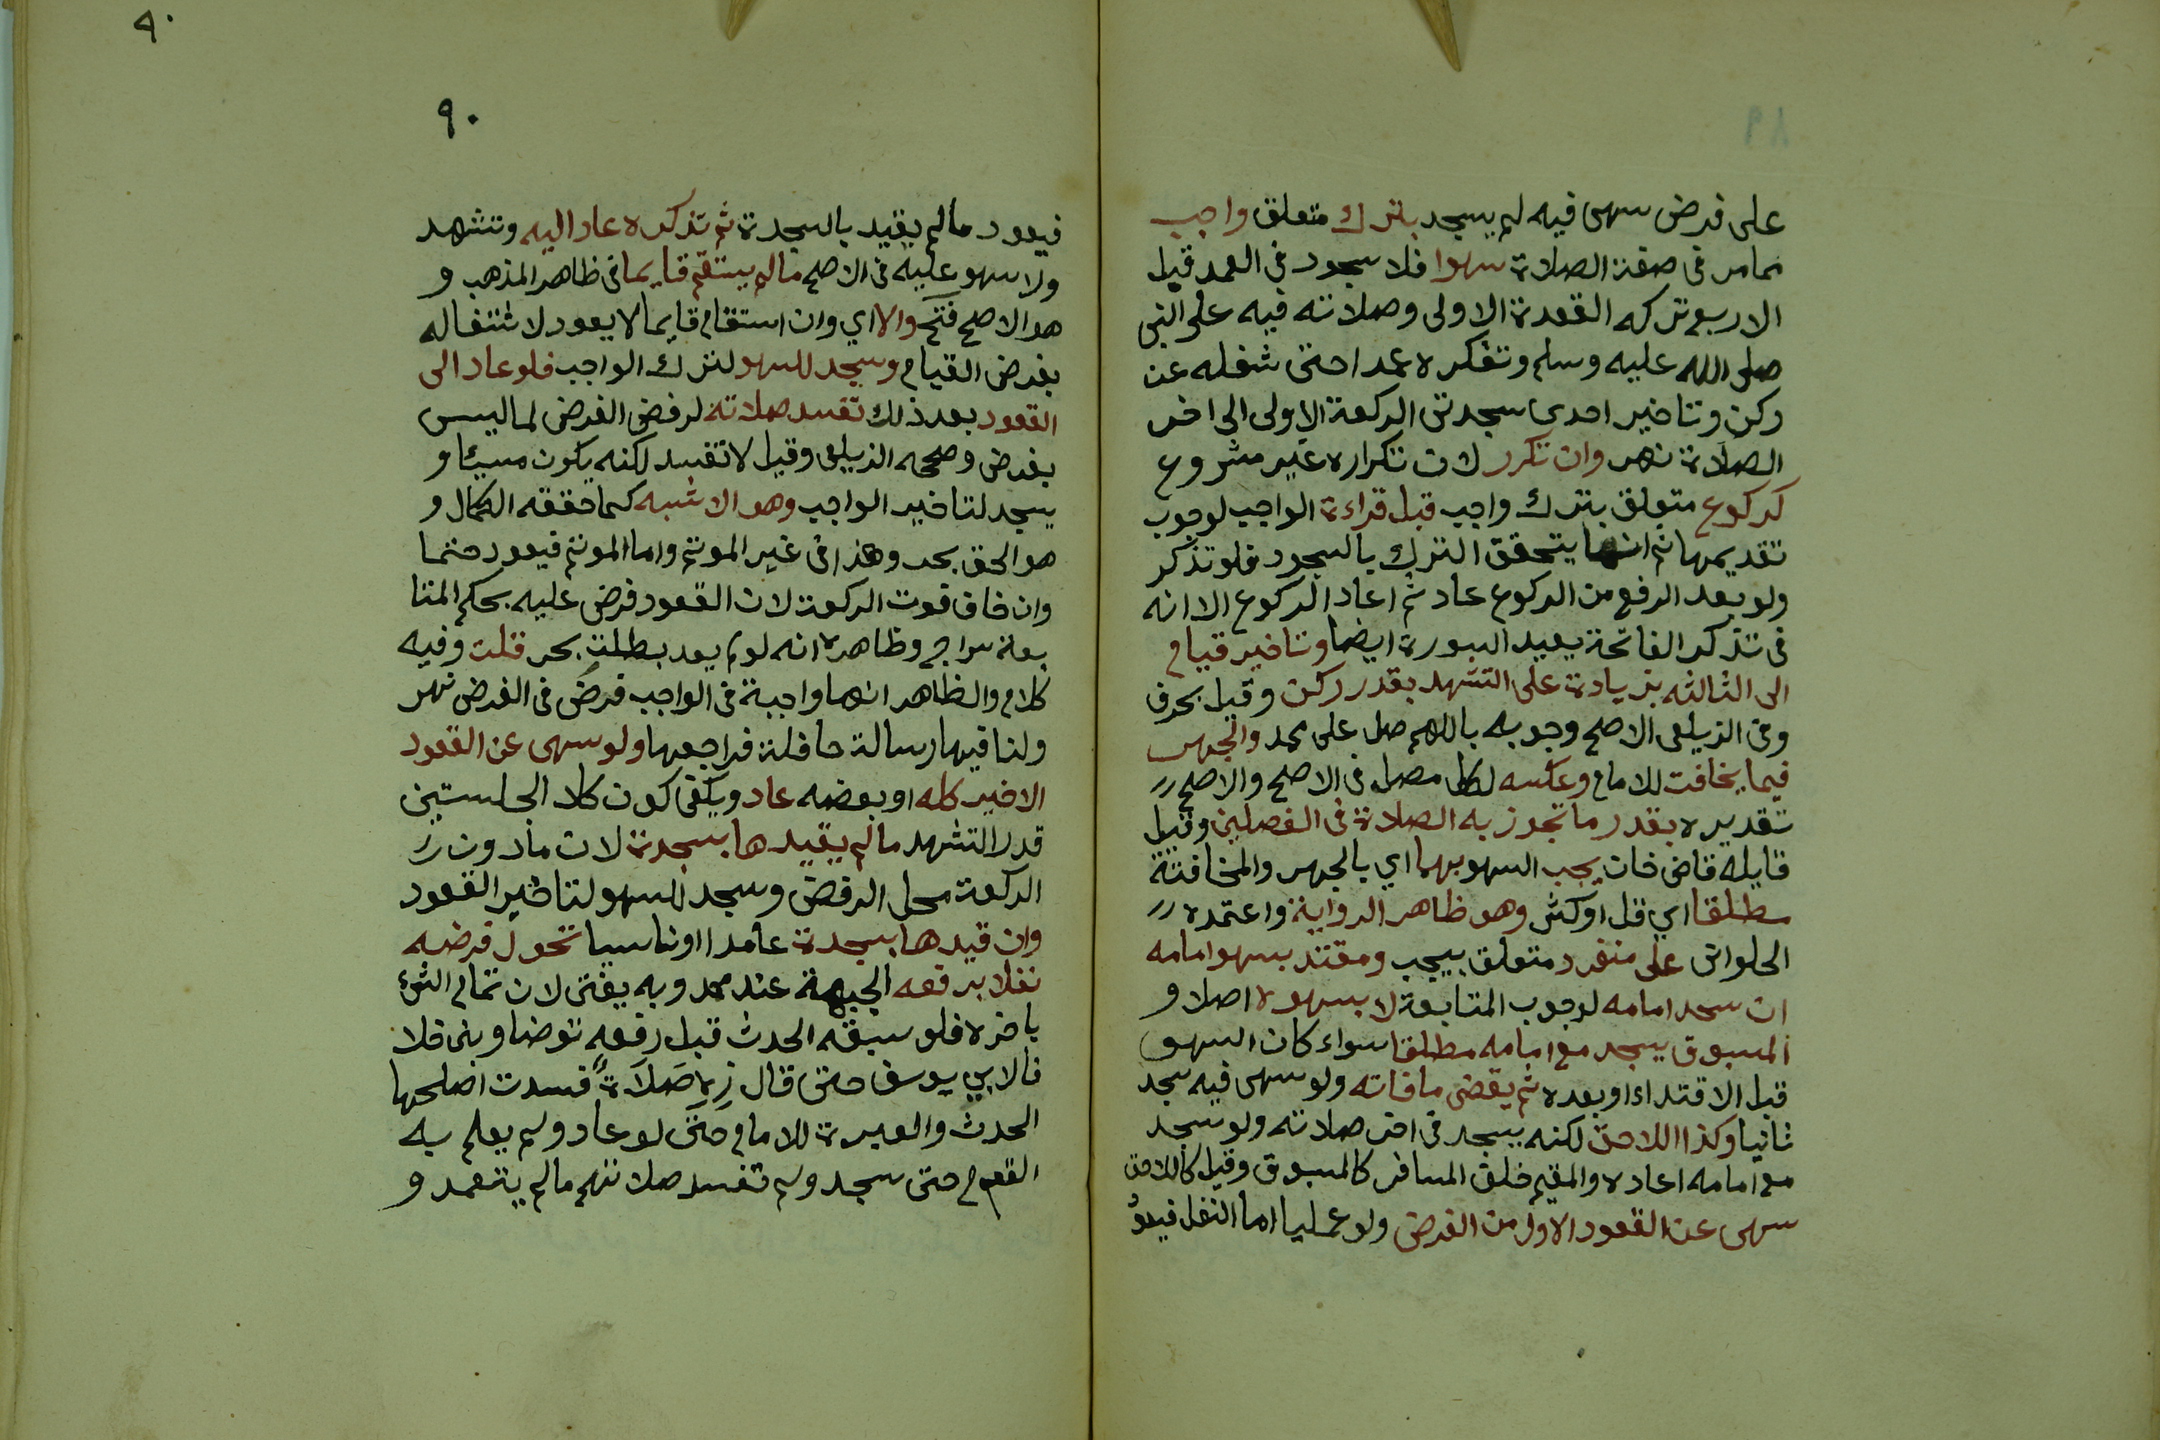 على فرض سهى فيه لم يسجد بترك متعلق واجب
مما مر فى صفة الصلاة سهوا فلا سجود فى العمد قيل
الا ربع تركه القعدة الاولى وصلاته فيه على النبى
صلى الله عليه وسلم وتفكره عمدا حتى شغله عن
ركن وتاخير احدى سجدتى الركعة الاولى الى اخر
الصلاة نهر وان تكرر لان تكراره غير مشروع
كركوع متعلق بترك واجب قبل قراءة الواجب لوجوب
تقديمها ثم انما يتحقق الترك بالسجود فلو تذكر
ولو بعد الرفع من الركوع عاد ثم اعاد الركوع الا انه
فى تذكر الفاتحة يعيد السورة ايضا وتاخير قيام
الى الثالثه بزيادة على التشهد بقدر ركن وقيل بحرف
وفى الزيلعى الاصح وجوبه باللهم صل على محمد والجهر
فيما يخافت للامام وعكسه لكل مصل فى الاصح والاصح
تقديره بقدر ما تجوز به الصلاة فى الفصلين وقيل
قايله قاضى خان يجب السهو بهما اي بالجهر والمخافتة
مطلقا اي قل او كثر وهو ظاهر الرواية واعتمده
الحلوانى على منفرد متعلق بيجب ومقتد بسهو امامه
ان سجد امامه لوجوب المتابعة لا بسهوه اصلا و
المسبوق يسجد مع امامه مطلقا سواء كان السهو
قبل الاقتداء او بعده ثم يقضى ما فاته ولو سهى فيه سجد
ثانيا وكذا اللاحق لكنه يسجد فى اخر صلاته ولو سجد
مع امامه اعاده والمقيم خلف المسافر كالمسبوق وقيل كاللاحق
سهى عن القعود الاول من الفرض ولو عمليا اما النفل فيعوُ
٩٠
٩٠
فيعود ما لم يقيد بالسجدة ثم تذكره عاد اليه وتشهد
ولا سهو عليه فى الاصح ما لم يستقم قايما فى ظاهر المذهب و
هو الاصح فتح والا اي وان استقام قايما لا يعود لاشتغاله
بفرض القيام وسجد للسهو لترك الواجب فلو عاد الى
القعود بعد ذلك تفسد صلاته لرفض الفرض لما ليس
بفرض وصححه الزيلعى وقيل لا تفسد لكنه يكون مسيئا و
يسجد لتاخير الواجب وهو الاشبه كما حققه الكمال و
هو الحق بحر وهذا فى غير الموتم واما الموتم فيعود حتما
وان خاف فوت الركعة لان القعود فرض عليه بحكم المتا
بعة سراج وظاهره انه لو لم يعد بطلت بحر قلت وفيه
كلام والظاهر انها واجبة فى الواجب فرض فى الفرض نهر
ولنا فيها رسالة حافلة فراجعها ولو سهى عن القعود
الاخير كله او بعضه عاد ويكفى كون كلا الجلستين
قدر التشهد ما لم يقيدها بسجدة لان ما دون
الركعة محل الرفض وسجد للسهو لتاخير القعود
وان قيدها بسجدة عامدا او ناسيا تحول فرضه
نفلا برفعه الجبهة عند محمد وبه يفتى لان تمام الشئ
باخره فلو سبقه الحدث قبل رفعه توضا وبنى خلا
فا لابي يوسف حتى قال زِهْ صَلَاةً فسدت اصلحها
الحدث والعبرة للامام حتى لو عاد ولم يعلم به
القوم حتى سجد ولم تفسد صلاتهم ما لم يتعمد و